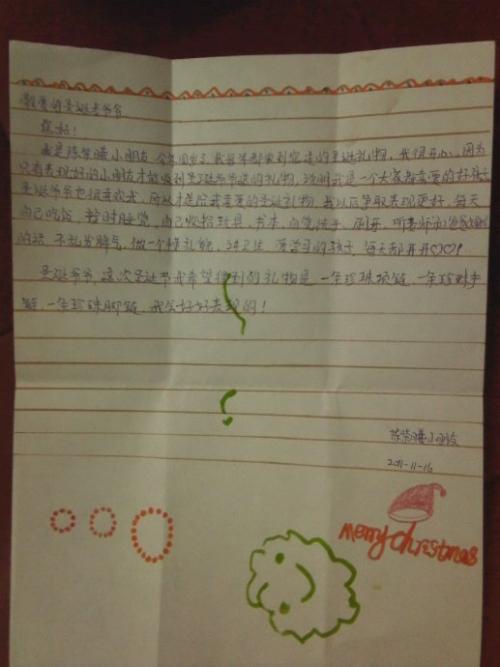 敬爱的圣诞老爷爷
您好!
我是陈 曦小朋友 今年 岁了,我每年都收到您送的圣诞礼物,我很开心,因为
只有表现好的小朋友才能收到圣诞爷爷送的礼物,证明我是一个大家都喜爱的好孩子
圣诞爷爷也很喜欢我,所以才送给我喜爱的圣诞礼物,我以后争取表现更好,每天
自己吃饭,按时睡觉,自己收拾玩具、书本,自觉洗手、刷牙,听老师和爸爸妈妈
的话,不乱发脾气,做一个有礼貌,讲卫生,爱学习的孩子,每天都开开心心!
圣诞爷爷,这次圣诞节我希望得到的礼物是一条珍珠项链,一条珍珠手
链,一条珍珠脚链,我会好好表现的!
陈 曦小朋友
2011-11-16
merry christmas